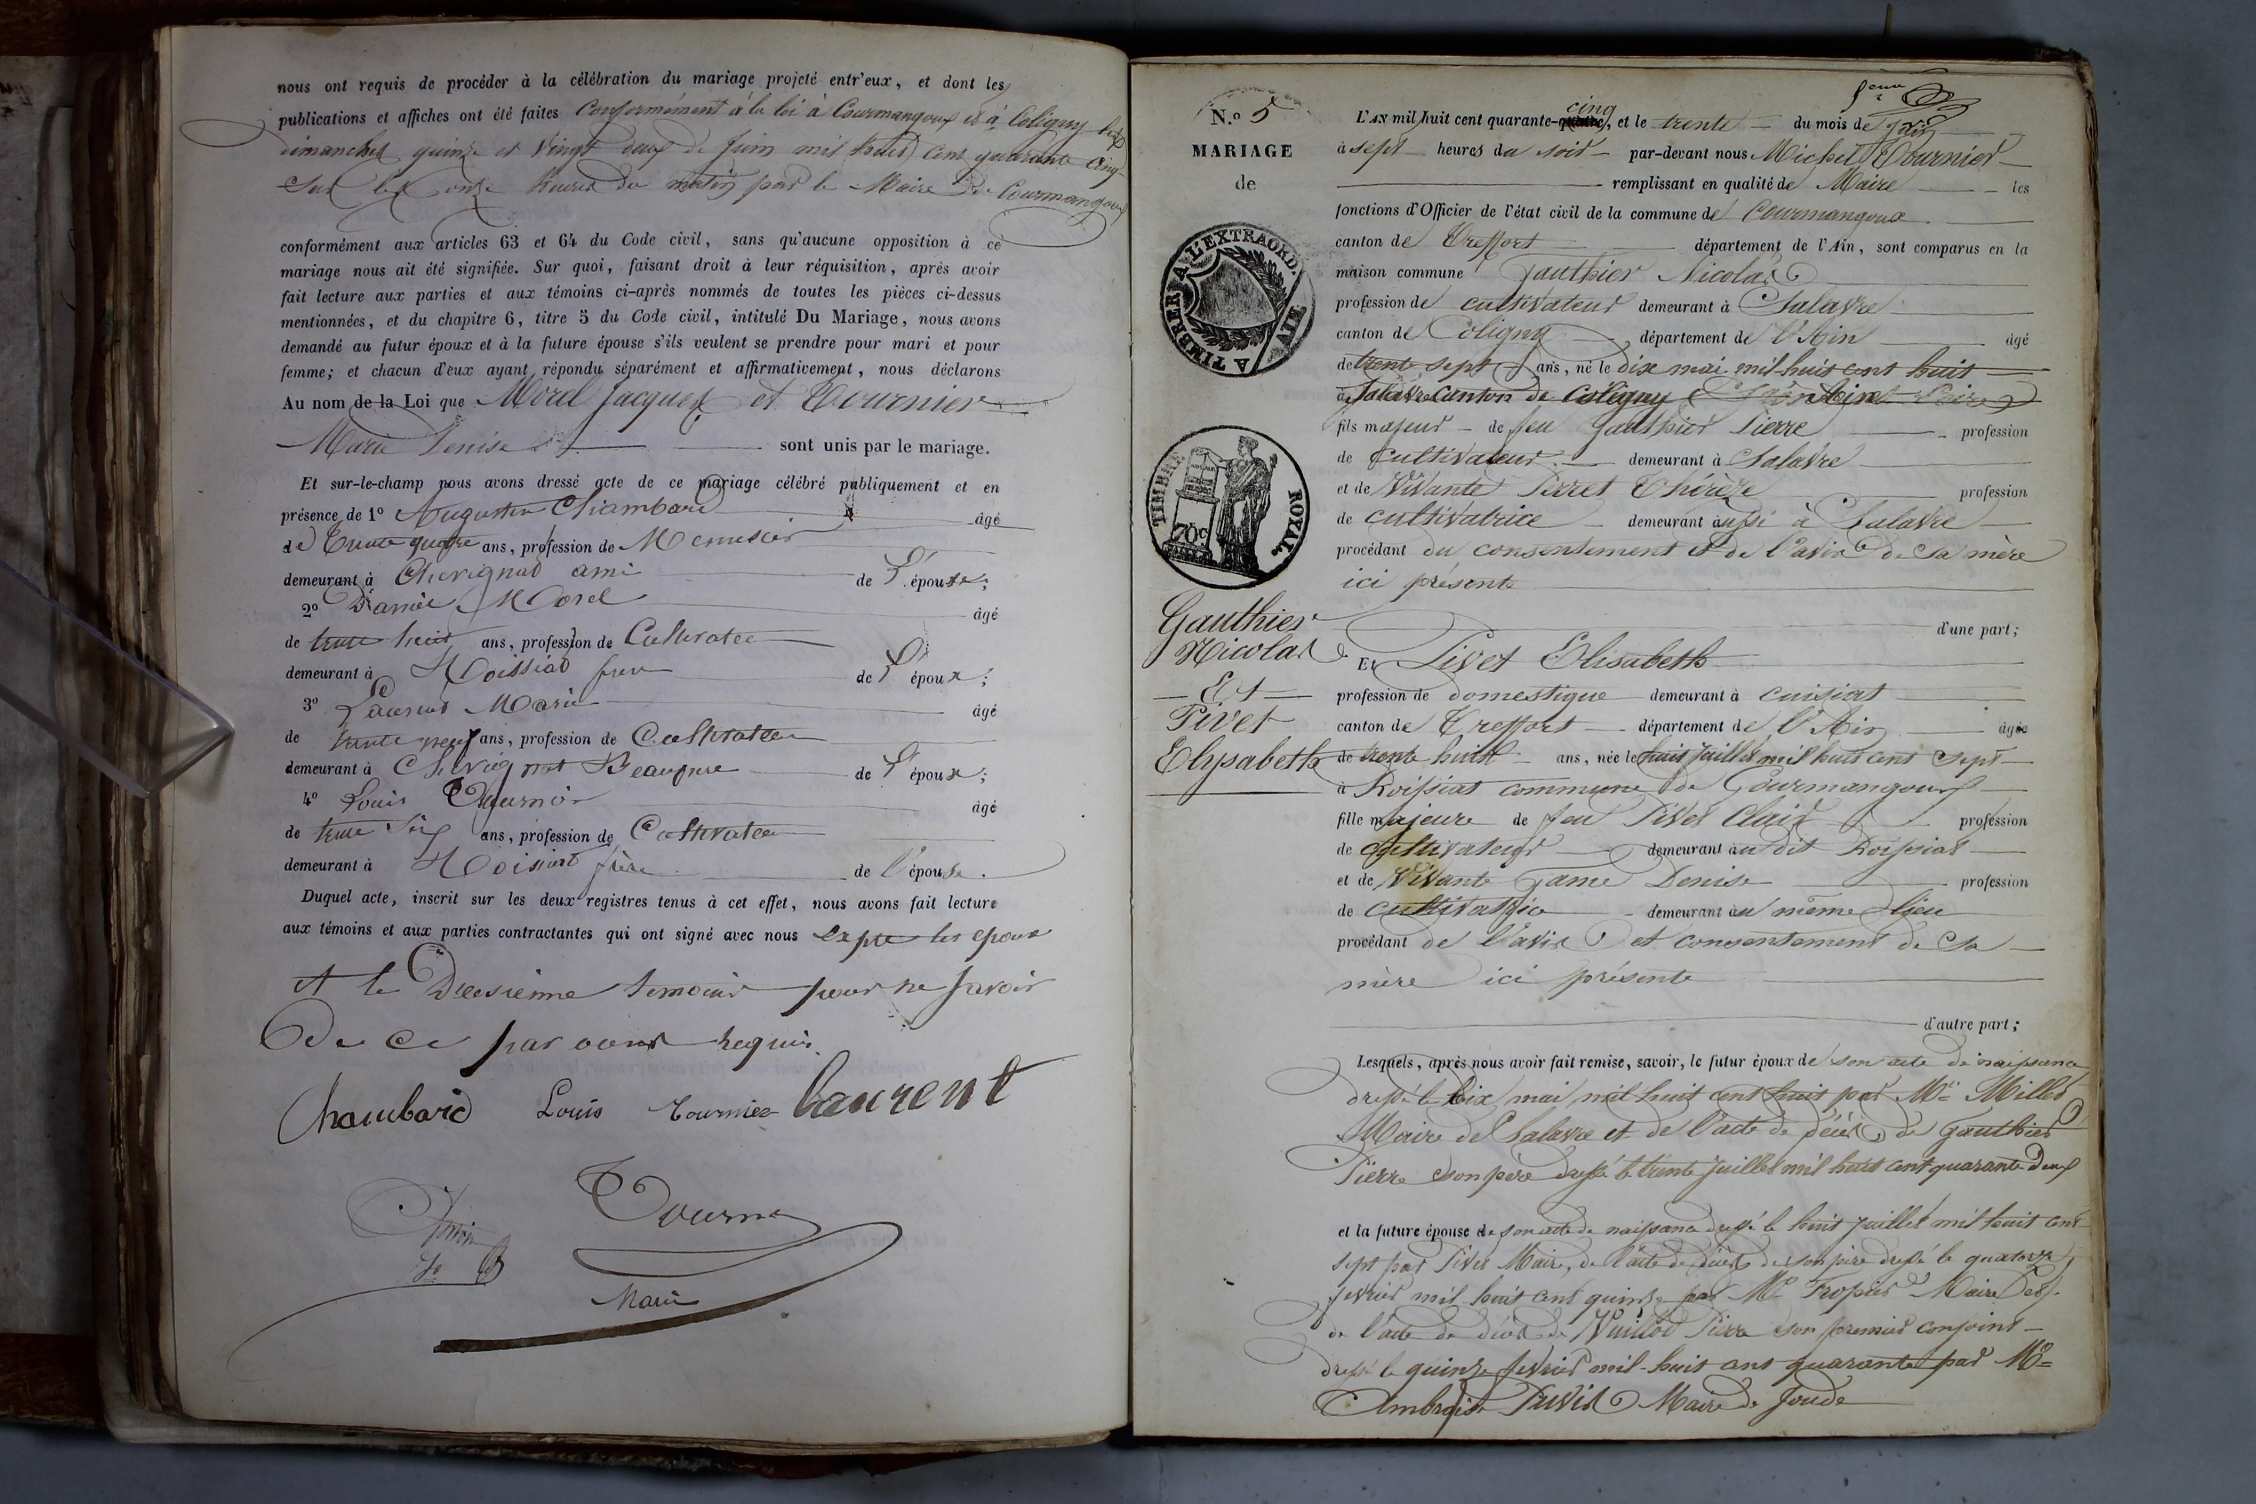 nous ont requis de procéder à la célébration du mariage projeté entr'eux, et dont les
publications et affiches ont été faites conformément à la loi à Courmangoux et à Coligny les
dimanches quinze et vingt deux de Juin mil huit cent quarante cinq
sur les onze heures du matin par le Maire de Courmangoux
conformément aux articles 63 et 64 du Code civil, sans qu'aucune opposition à ce
mariage nous ait été signifiée. Sur quoi, faisant droit à leur réquisition, après avoir
fait lecture aux parties et aux témoins ci-après nommés de toutes les pièces ci-dessus
mentionnées, et du chapitre 6, titre 5 du Code civil, intitulé Du Mariage, nous avons
demandé au futur époux et à la future épouse s'ils veulent se prendre pour mari et pour
femme; et chacun d'eux ayant répondu séparément et affirmativement, nous déclarons
Au nom de la Loi que Morel Jacques et Tournier
Marie Denise sont unis par le mariage.
Et sur-le-champ nous avons dressé acte de ce mariage célébré publiquement et en
présence de 1º Augustin Chambard âgé
de Trente quatre ans, profession de Menuisier
demeurant à Chevignat ami de L'épouse;
2º Morel âgé
de trente huit ans, profession de Cultivateur
demeurant à Roissiat frère de L'époux;
3º Laurent Marie âgé
de trente neuf ans, profession de Cultivateur
demeurant à Chevignat Beaufrère de L'époux;
4º Louis Tournier âgé
de trente six ans, profession de Cultivateur
demeurant à Roissiat frère de l'épouse.
Duquel acte, inscrit sur les deux registres tenus à cet effet, nous avons fait lecture
aux témoins et aux parties contractantes qui ont signé avec nous expté les epoux
et le Deuxieme temoins pour ne savoir
De ce par nous requis
Chambard Louis Tournier Laurent
Tournier
Marie
N.º 5
MARIAGE
de
A TIMBRER A L'EXTRAORD.
AIN
TIMBRE ROYAL
70c
Gauthier
Nicolas
Et
Pivet
Elysabeth
L'AN mil huit cent quarante-quatre cinq, et le trente du mois de Juin
à sept heures du soir par-devant nous Michel Tournier
remplissant en qualité de Maire les
fonctions d'Officier de l'état civil de la commune de Courmangoux
canton de Treffort département de l'Ain, sont comparus en la
maison commune Gauthier Nicolas
profession de cultivateur demeurant à Salavre
canton de Coligny département de l'Ain âgé
de trente sept ans, né le dix mai mil huit cent huit
à Salavre Canton de Coligny
fils majeur de feu Gauthier Pierre profession
de cultivateur demeurant à Salavre
et de Vivante Perret Thérèze profession
de cultivatrice demeurant aussi à Salavre
procédant du consentement et de l'avis de sa mère
ici présente
d'une part;
Et Pivet Elisabeth
profession de domestique demeurant à cuisiat
canton de Treffort département de l'Ain âgée
de trente huit ans, née le huit juillet mil huit cent sept
à Roissiat commune de Courmangoux
fille majeure de feu Pivet Clair profession
de cultivateur demeurant au dit Roissiat
et de Vivante Denise profession
de cultivatrice demeurant au même lieu
procédant de l'avis et consentement de sa
mère ici présente
d'autre part;
Lesquels, après nous avoir fait remise, savoir, le futur époux de son acte de naissance
dressé le dix mai mil huit cent huit par Mr Millet
Maire de Salavre et de l'acte de décès de Gauthier
Pierre son père dressé le trente juillet mil huit cent quarante deux
et la future épouse de son acte de naissance dressé le huit juillet mil huit cent
sept par Pivet Maire, de l'acte de décès de son père dressé le quatorze
fevrier mil huit cent quinze par Mr Maire et
de l'acte de décès de Vuillod Pierre son premier conjoint
dressé le quinze fevrier mil huit cent quarante par Mr
Ambroise Maire de Joude